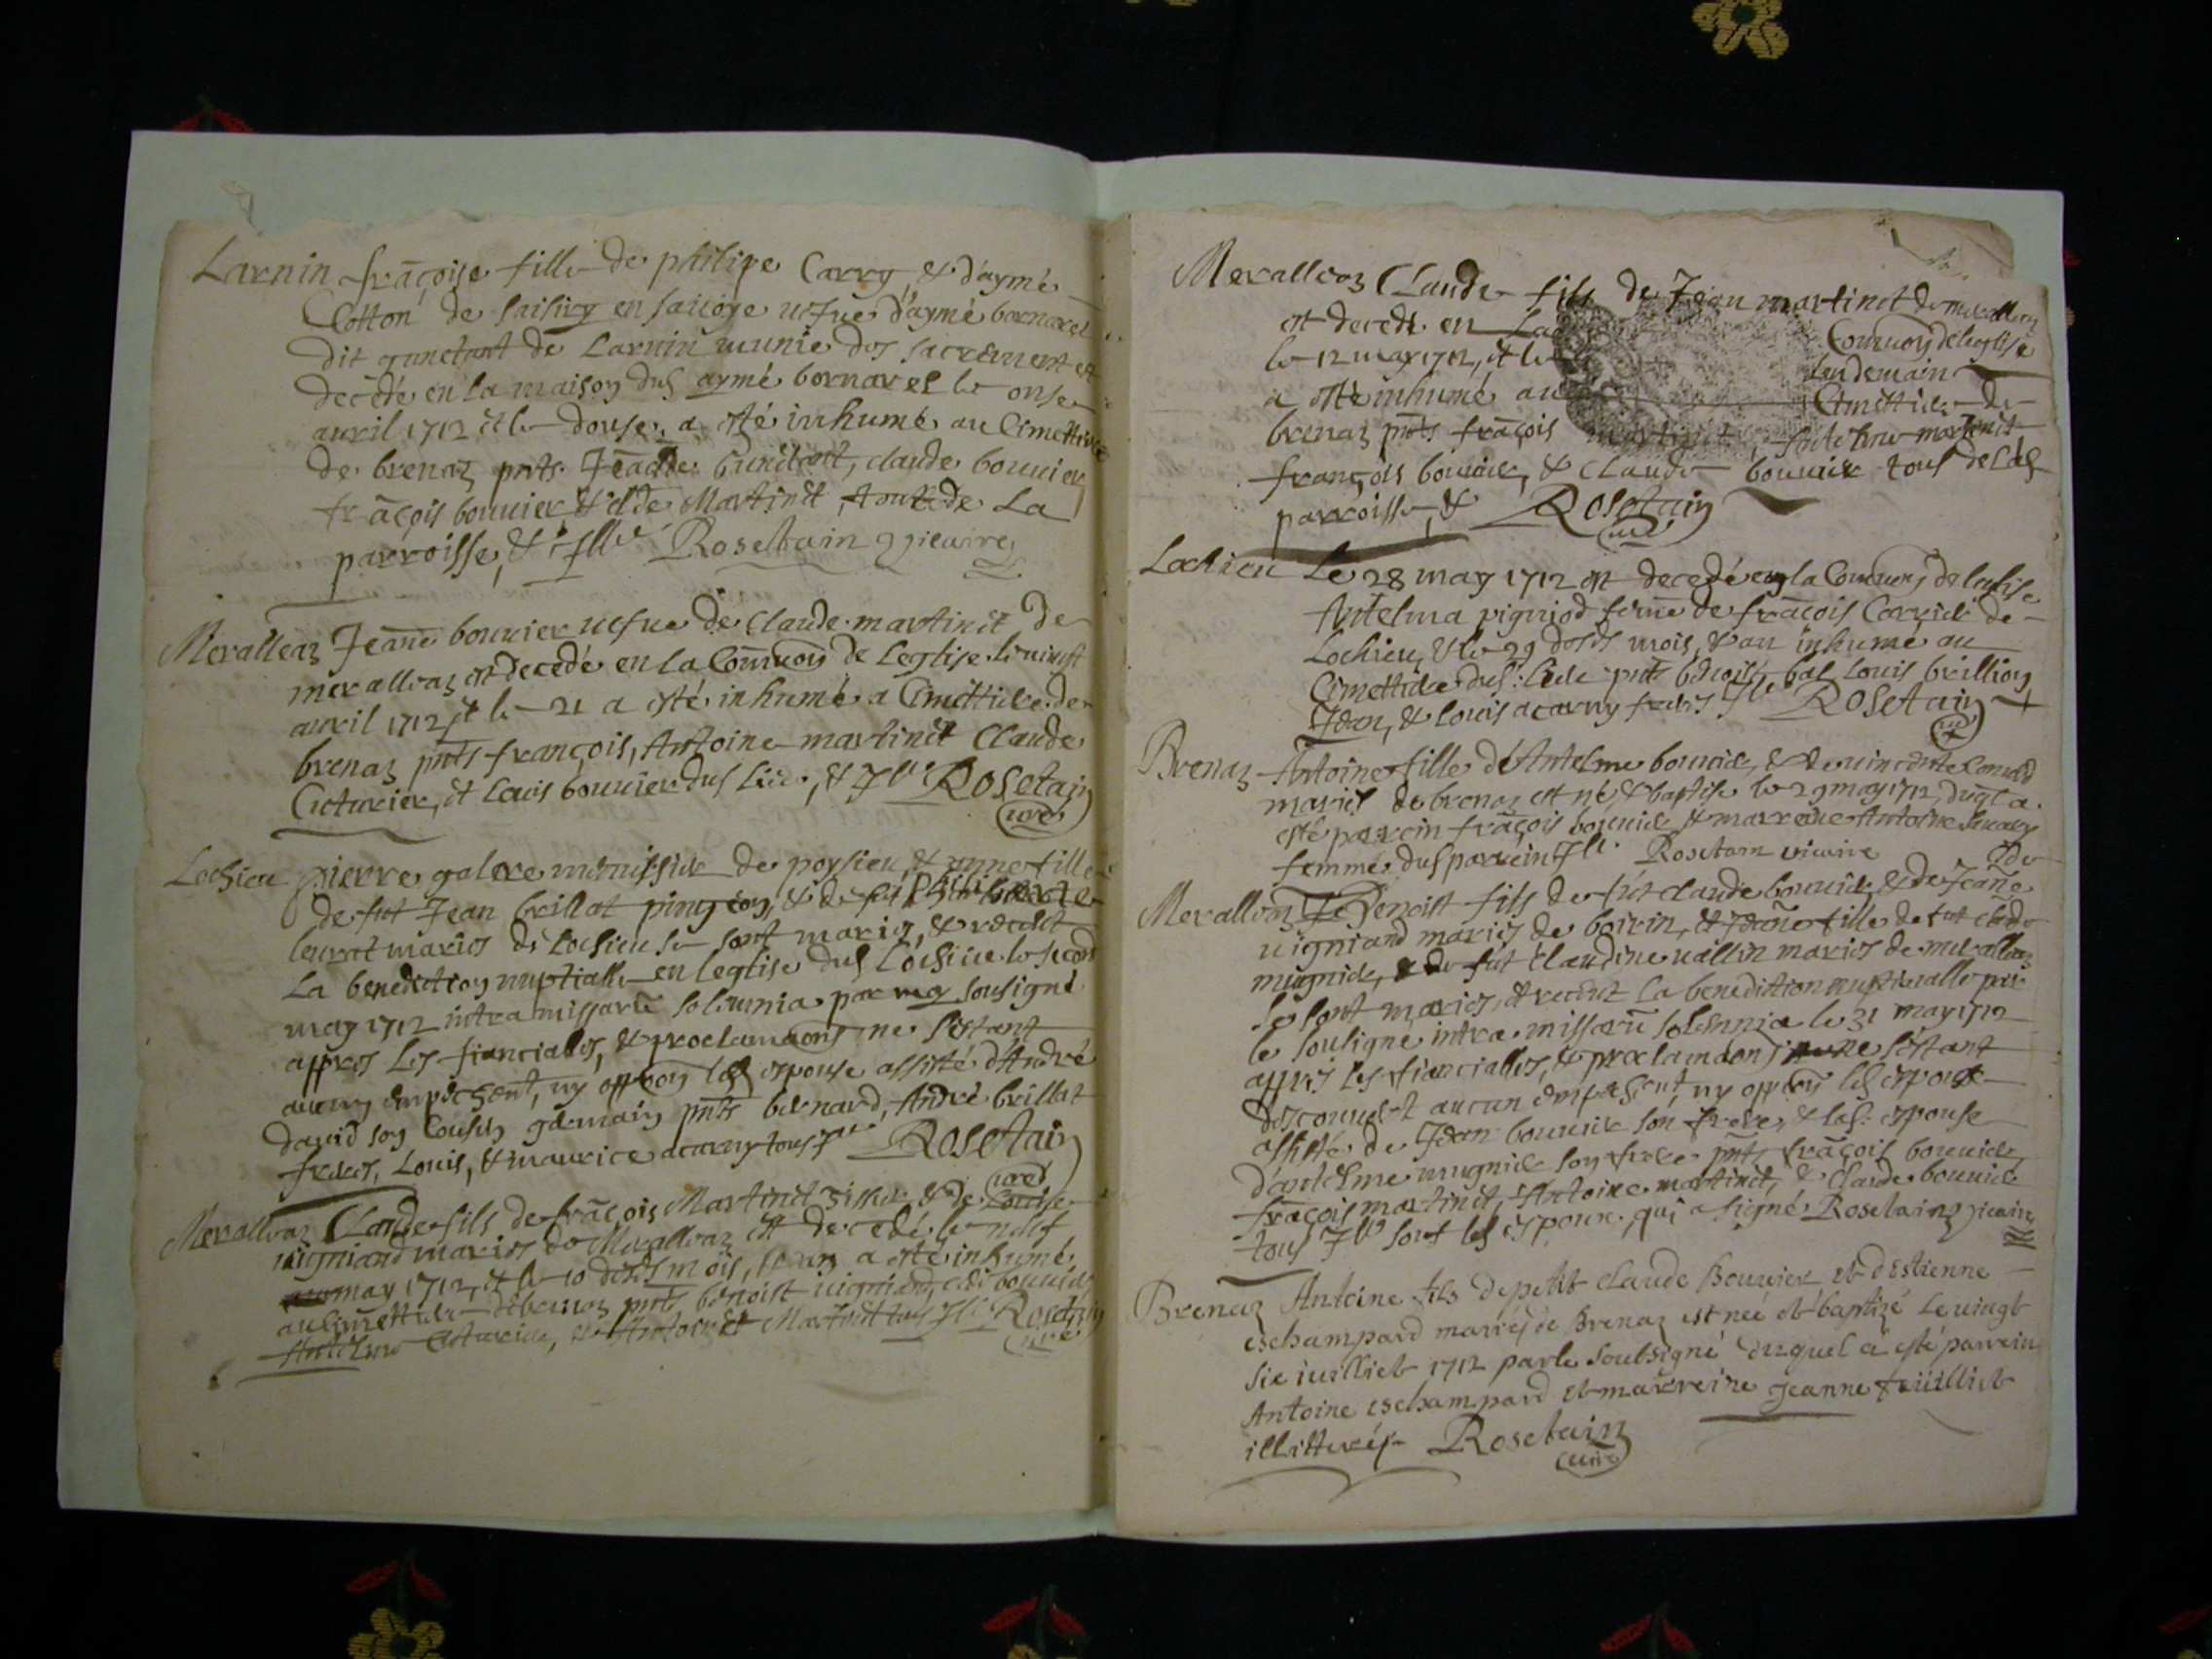 Larnin françoise fille de philipe Carry, & d'aymé
Cotton de en sauoye uefue d'aymé bornarel
dit de Larnin munie des sacrement est
decedé en la maison dud aymé bornarel le onse
auril 1712 et le douse, a esté inhumé au Cimettiere
de brenaz pnts claude bouuier
françois bouuier & Martinet, tout de La
parroisse, & illre Rosetain vicaire
Meralleaz Jeanne bouuier uefue de Claude martinet de
meralleaz est decedé en la Comuon de Leglise le uingt
auril 1712 et le 21 a esté inhumé a Cimettiere de
brenaz pnts françois, Antoine martinet Claude
Cuturier, et Louis bouuier dud lieu, & Jlle Rosetain
curé
Lochieu pierre galere menuisier de poysieu, & anne fille
de fut Jean brillat pingeon, & de
leurat mariés de Lochieu se sont mariés, & receut
La benediction nuptialle en leglise dud Lochieu le second
may 1712 intra missarum solemnia par moy sousigné
appres les fiancialles, & proclamaons ne s'estant
aucun empechent, ny oppoon lad espouse assisté d'André
dauid son Cousin germain pnts bernard, André brillat
freres, Louis, & maurice acarry tous Jlle Rosetain
curé
Meralleaz Claude fils de françois Martinet Tissier & de Louise
uigniand mariés de Meralleaz est decedé le neuf
may 1712, et le 10 desd mois, & an a esté inhumé
au Cimettiere de brenaz pnts benoist uigniand, bouuier
Antelme Cuturier, & Antoine Martinet tous Jlle Rosetain
curé
Meralleaz Claude fils de Jean martinet de meralleaz
est decedé en La Comuon de leglise
le 12 may 1712, et le lendemain
a esté inhumé au Cimettiere de
brenaz pnts françois martinet, Antelme martinet
françois bouuier, & Claude bouuier tous de lad
parroisse, & Rosetain
curé
Lochieu Le 28 may 1712 est decedé en la Comuon de leglise
Antelma pigniod femme de françois Carrier de
Lochieu, & le 29 desd mois, & an inhumé au
Cimettiere dud: lieu pnts benoist, bal Louis brillion
Jean, & Louis acarry freres Jlle Rosetain
curé
Brenaz Antoine fille d'Antelme bouuier, &
mariés de brenaz est né, & baptisé le 29 may 1712, duql a
esté parrein françois bouuier & marreine Antoine
femme dud parrein Jlle. Rosetain vicaire
Meralleaz Benoist fils de fut claude bouuier, & de Jeanne
uigniand mariés de boirin, & Jeanne fille de fut
mugnier, & de fut Claudine uallin mariés de meralleaz
se sont mariés, et receut La benediction nuptialle par
le sousigne intra missarum solemnia le 31 may 1712
appres les fiancialles, & proclamaons ne s'estant
descouuert aucun empechent, ny oppoon led espoux
assisté de Jean bouuier son frere, & lad: espouse
d'antelme mugnier son frere pnts françois bouuier,
françois martinet, Antoine martinet, & Claude bouuier
tous Jlle sauf led espoux qui a signé Rosetain vicaire
Brenaz Antoine fils de petit claude Bouuier et d'Estienne
eschampard mariés de Brenaz est neé et baptizé le uingt
sic iuilliet 1712 par le soubsigné duquel a esté parrein
Antoine eschampard et marreine jeanne feuilliet
illitterés Rosetain
curé